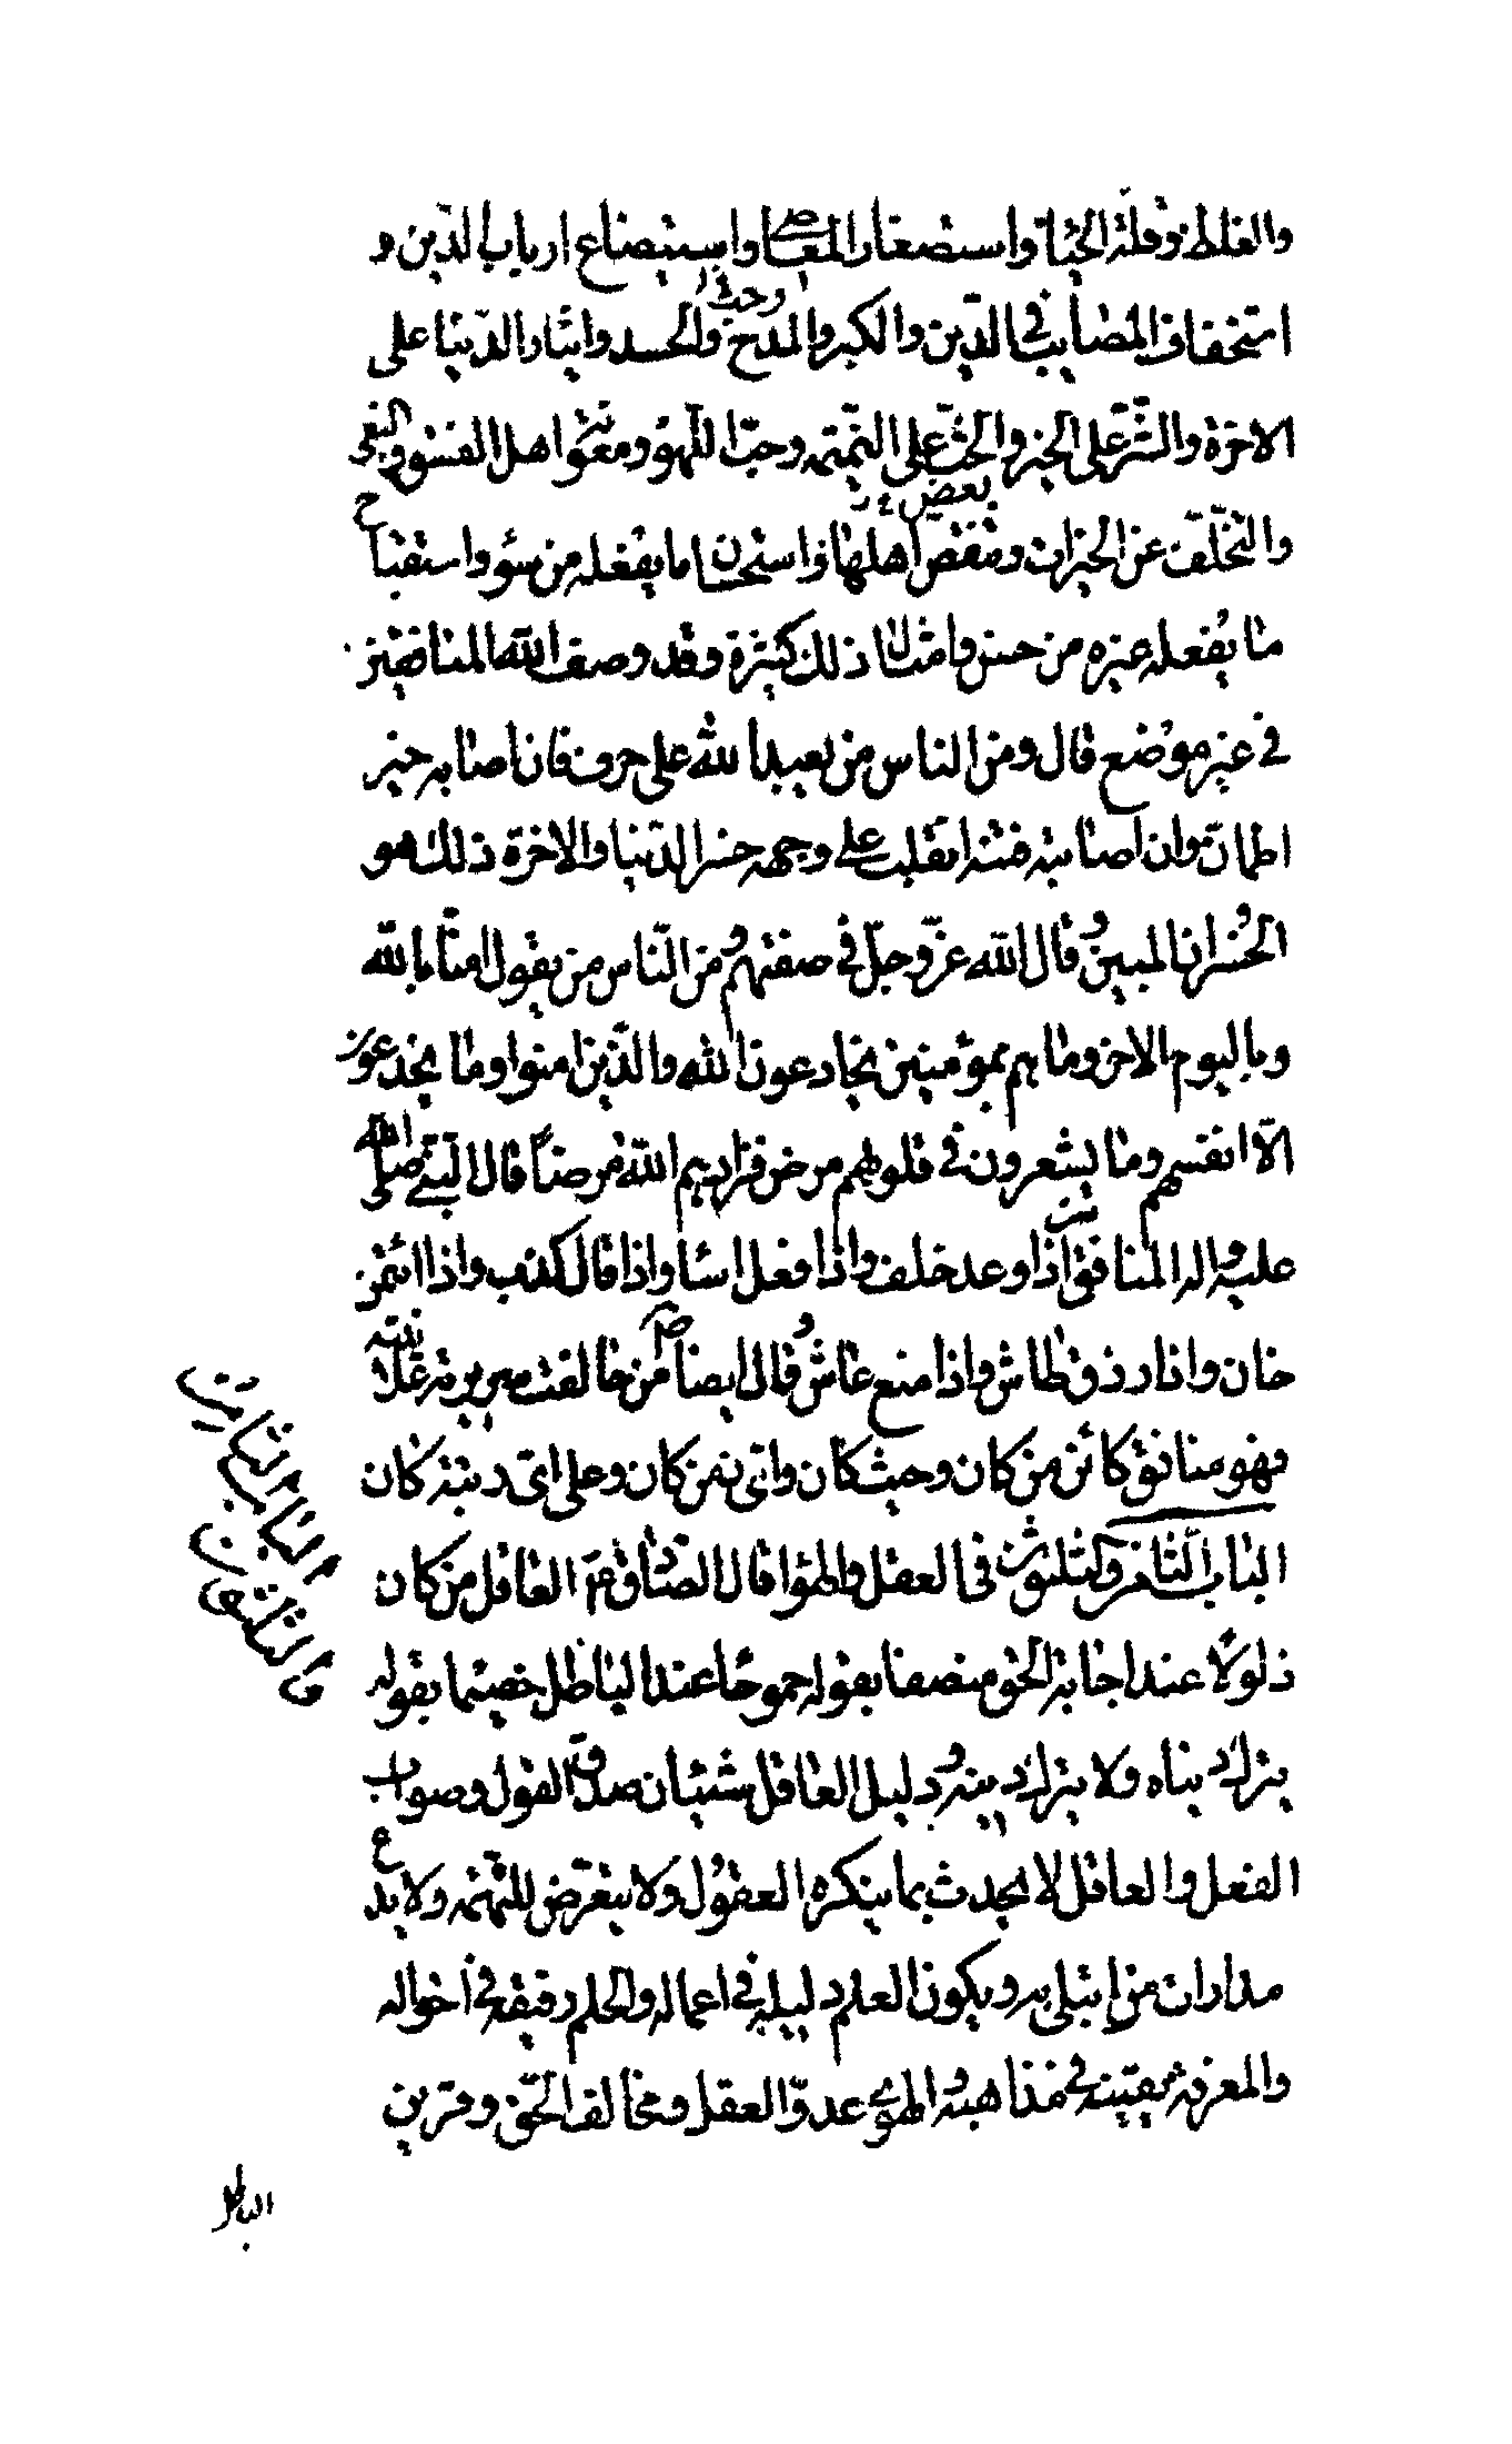 والغلط وقلة الحياء واستصغار المعاصي واستيضاع ارباب الدين و
استخفاف المصايب في الدين والكبر والمدح وحب والحسد وايثار الدنيا على
الاخرة والشر على الخير والحث على النميمة وحب اللهو ومعونة اهل الفسوق والبغي
والتخلف عن الخيرات وتنقص اهلها واستحسان ما يفعله من سوء واستقباح
ما يفعله غيره من حسن وامثال ذلك كثيرة وقد وصف الله المنافقين
في غير موضع قال ومن الناس من يعبد الله على حرف فان اصابه خير
اطمان وان اصابته فتنة انقلب على وجهه خسر الدنيا والاخرة ذلك هو
الخسران المبين وقال الله عز وجل في صفتهم ومن الناس من يقول امنا بالله
وباليوم الاخر وما هم بمؤمنين يخادعون الله والذين امنوا وما يخدعون
الا انفسهم وما يشعرون في قلوبهم مرض فزادهم الله مرضا قال النبي صلى الله
عليه واله المنافق من اذا وعد خلف واذا فعل اساء واذا قال كذب واذا ائتمن
خان واذا رزق طاش واذا منع عاش وقال ايضا ص من خالفت سريرته علانيته
فهو منافق كائن من كان وحيث كان وفي اي زمن كان وعلى اي رتبة كان
الباب الثامن والثلثون في العقل والهوا قال الصادق ع العاقل من كان
ذلولا عند اجابة الحق منصفا بقوله جموحا عند الباطل خصيما بقوله
يترك دنياه ولا يترك دينه ودليل العاقل شيئان صدق القول وصواب
الفعل والعاقل لا يحدث بما ينكره العقول ولا يتعرض للتهمة ولا يدع
مدارات من ابتلي به ويكون العلم دليله في اعماله والحلم رفيقه في احواله
والمعرفة يقينه في مذاهبه والهوى عدو العقل ومخالف الحق وقرين
الباطل
الباب الثامن
والثلثون